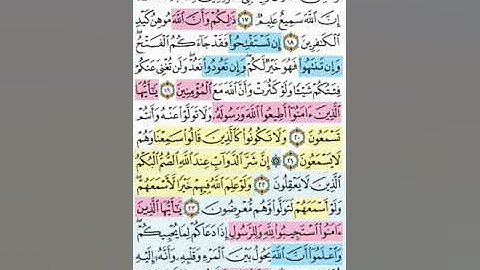 إِنَّ ٱللَّهَ سَمِيعٌ عَلِيمٌ ١٧ ذَٰلِكُمْ وَأَنَّ ٱللَّهَ مُوهِنُ كَيْدِ
ٱلْكَٰفِرِينَ ١٨ إِن تَسْتَفْتِحُوا۟ فَقَدْ جَآءَكُمُ ٱلْفَتْحُ ۖ
وَإِن تَنتَهُوا۟ فَهُوَ خَيْرٌ لَّكُمْ ۖ وَإِن تَعُودُوا۟ نَعُدْ وَلَن تُغْنِىَ عَنكُمْ
فِئَتُكُمْ شَيْـًٔا وَلَوْ كَثُرَتْ وَأَنَّ ٱللَّهَ مَعَ ٱلْمُؤْمِنِينَ ١٩ يَٰٓأَيُّهَا
ٱلَّذِينَ ءَامَنُوٓا۟ أَطِيعُوا۟ ٱللَّهَ وَرَسُولَهُۥ وَلَا تَوَلَّوْا۟ عَنْهُ وَأَنتُمْ
تَسْمَعُونَ ٢٠ وَلَا تَكُونُوا۟ كَٱلَّذِينَ قَالُوا۟ سَمِعْنَا وَهُمْ
لَا يَسْمَعُونَ ٢١ ۞ إِنَّ شَرَّ ٱلدَّوَآبِّ عِندَ ٱللَّهِ ٱلصُّمُّ ٱلْبُكْمُ
ٱلَّذِينَ لَا يَعْقِلُونَ ٢٢ وَلَوْ عَلِمَ ٱللَّهُ فِيهِمْ خَيْرًا لَّأَسْمَعَهُمْ ۖ
وَلَوْ أَسْمَعَهُمْ لَتَوَلَّوا۟ وَّهُم مُّعْرِضُونَ ٢٣ يَٰٓأَيُّهَا ٱلَّذِينَ
ءَامَنُوا۟ ٱسْتَجِيبُوا۟ لِلَّهِ وَلِلرَّسُولِ إِذَا دَعَاكُمْ لِمَا يُحْيِيكُمْ ۖ
وَٱعْلَمُوٓا۟ أَنَّ ٱللَّهَ يَحُولُ بَيْنَ ٱلْمَرْءِ وَقَلْبِهِۦ وَأَنَّهُۥٓ إِلَيْهِ